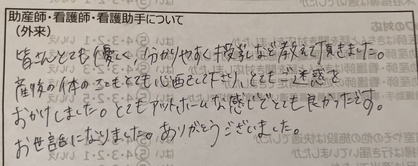 助産師・看護師・看護助手について
(外来)
皆さんとても優しく、分かりやすく授乳など教えて頂きました。
産後の体のこともとても心配して下さり、とてもご迷惑を
おかけしました。とてもアットホームな感じでとても良かったです。
お世話になりました。ありがとうございました。